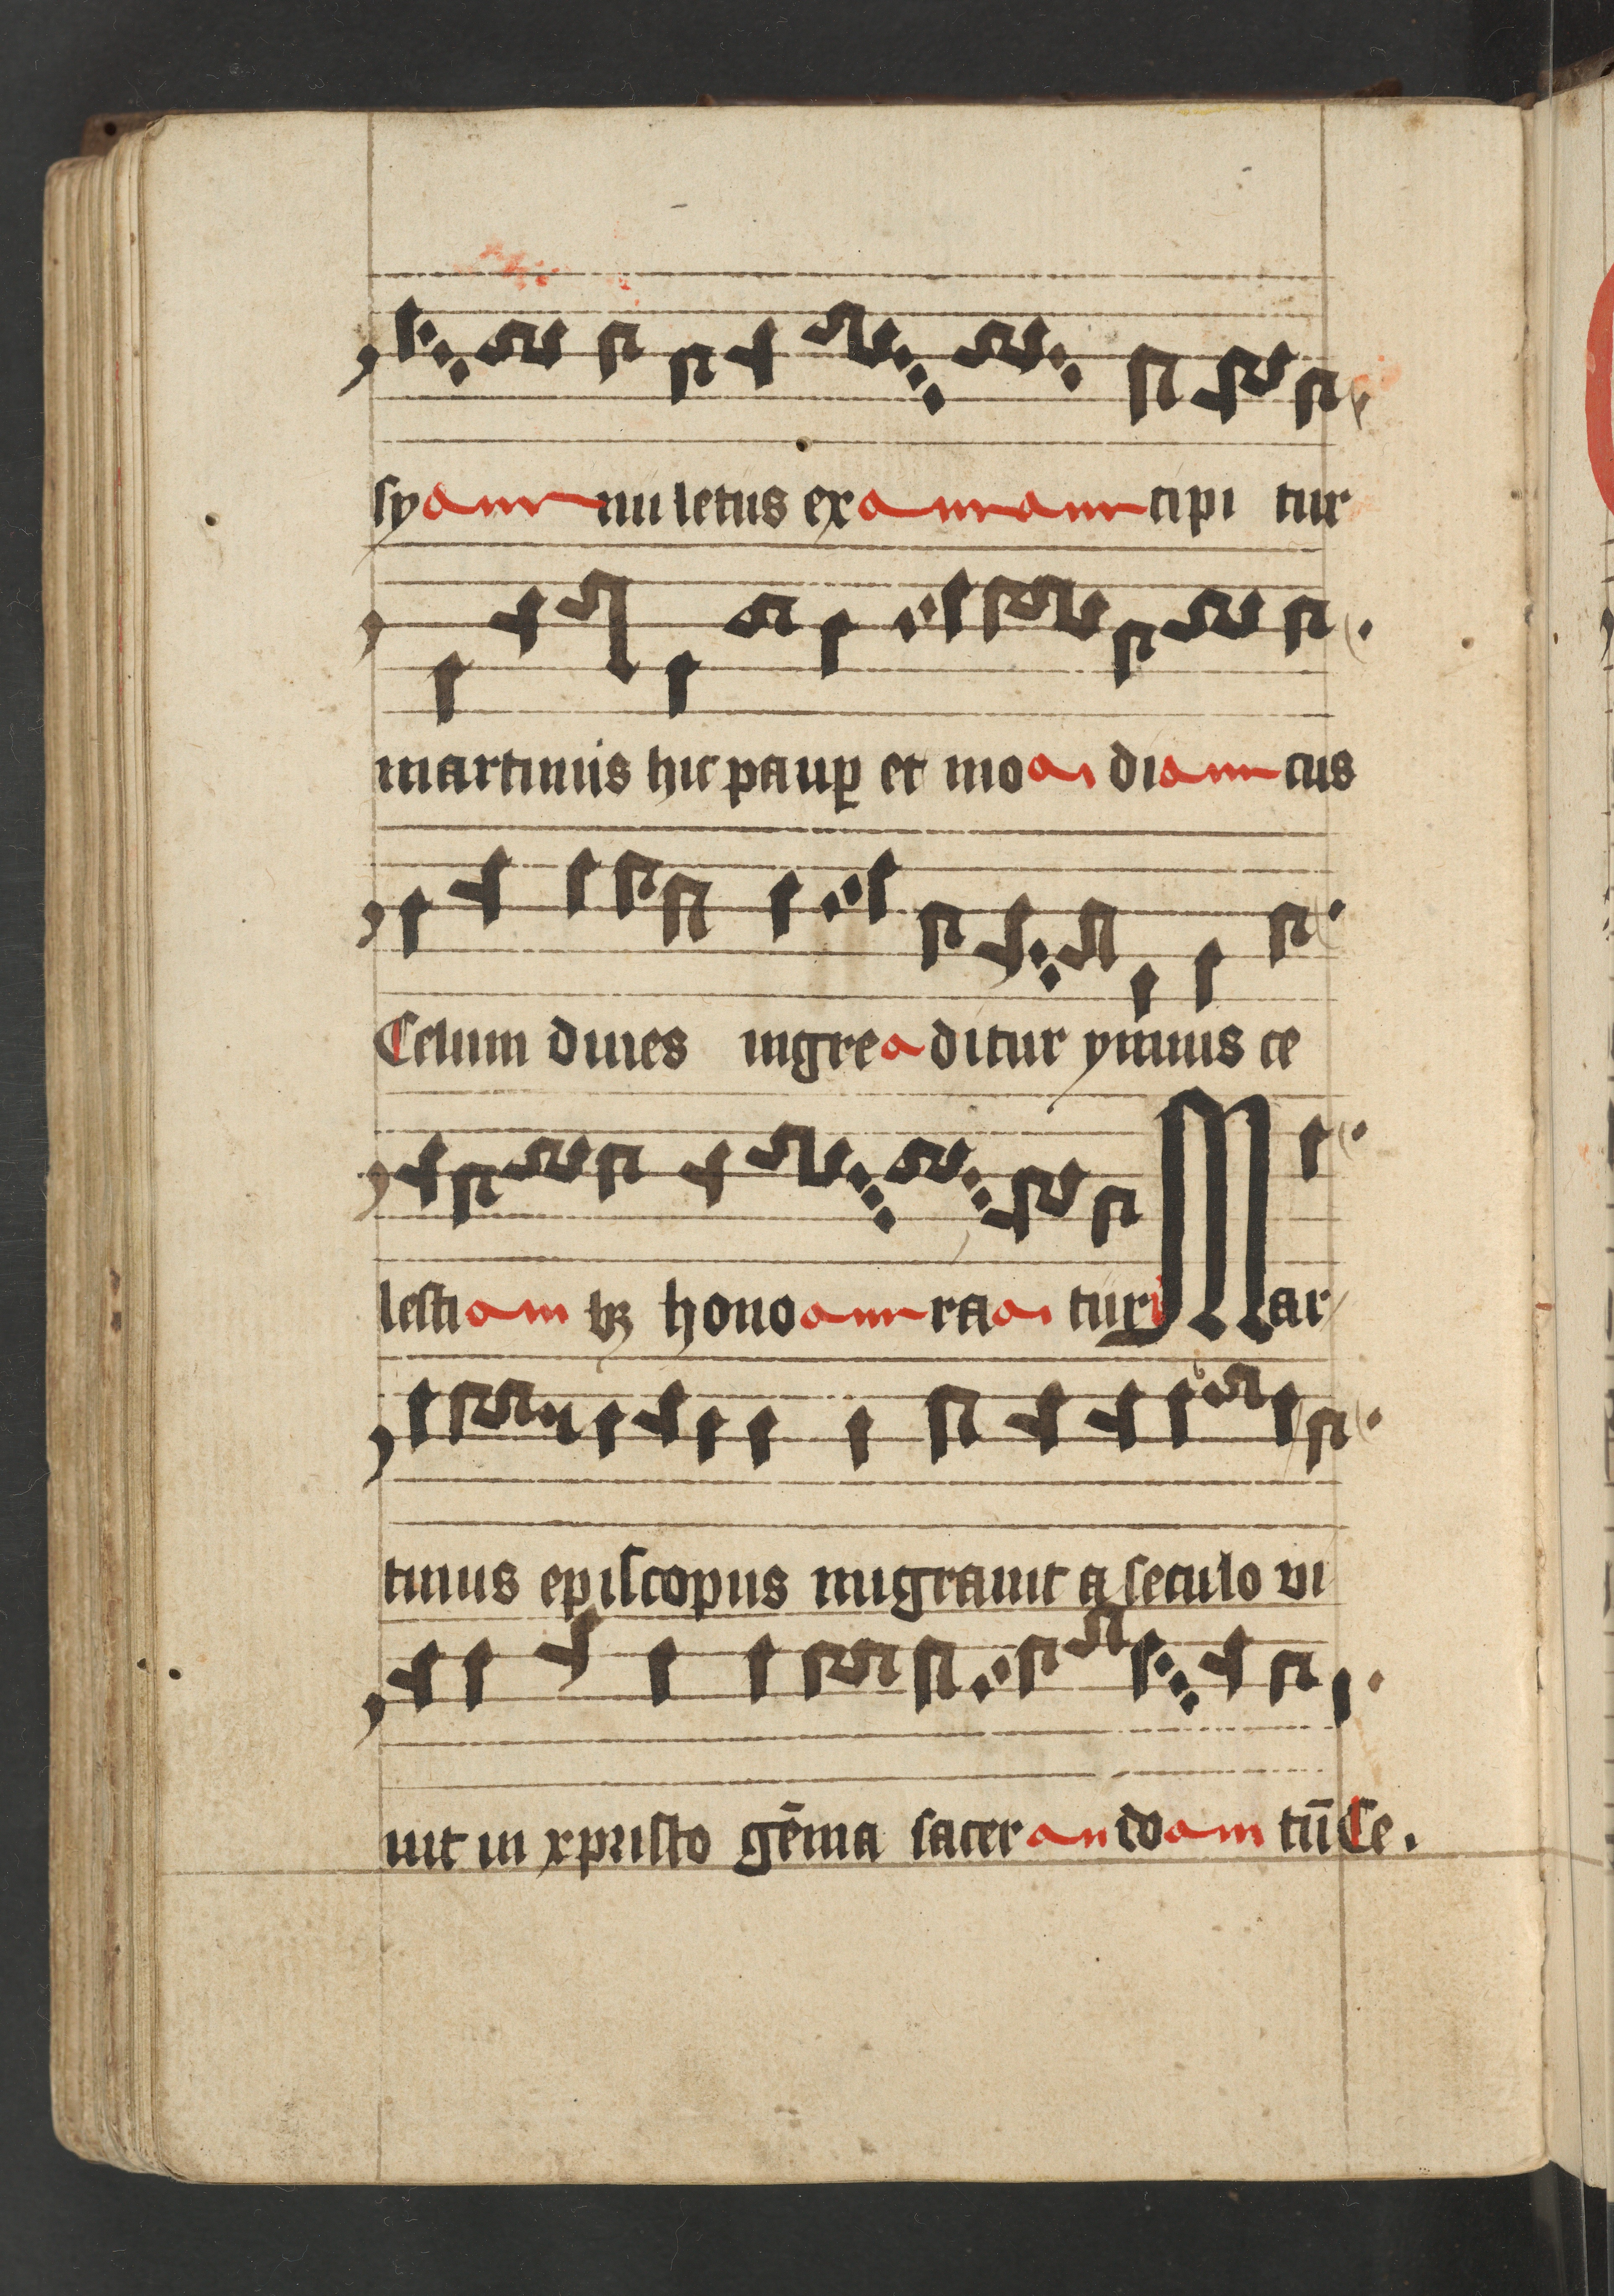 syamm nu letus exammamm cipi tur
martinus hic paup et moai diamm cus
Celum diues ingrea ditur ymnus ce
lestiam bꝫ honoamm raai tur Mar
tinus episcopus migrauit a seculo vi
uit in xpristo gēma saceran doam tū Ce.